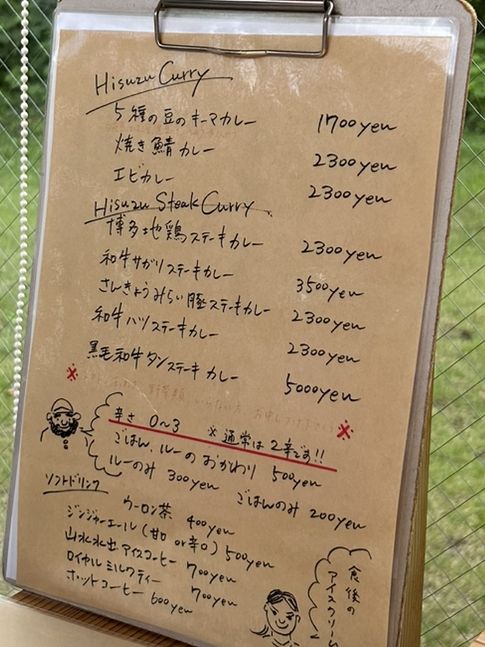 Hisuzu Curry
5種の豆のキーマカレー 1700yen
焼き鯖カレー 2300yen
エビカレー 2300yen
Hisuzu Steak Curry
博多地鶏ステーキカレー 2300yen
和牛サガリステーキカレー 3500yen
さんきょうみらい豚ステーキカレー 2300yen
和牛ハツステーキカレー 2300yen
黒毛和牛タンステーキカレー 5000yen
辛さ 0〜3 ※通常は2辛です!!
ごはん、ルーのおかわり 500yen
ルーのみ 300yen ごはんのみ 200yen
ソフトドリンク
ウーロン茶 400yen
ジンジャーエール(甘口 or 辛口) 500yen
山水水出アイスコーヒー 700yen
ロイヤルミルクティー 700yen
ホットコーヒー 600yen
食後の
アイスクリーム